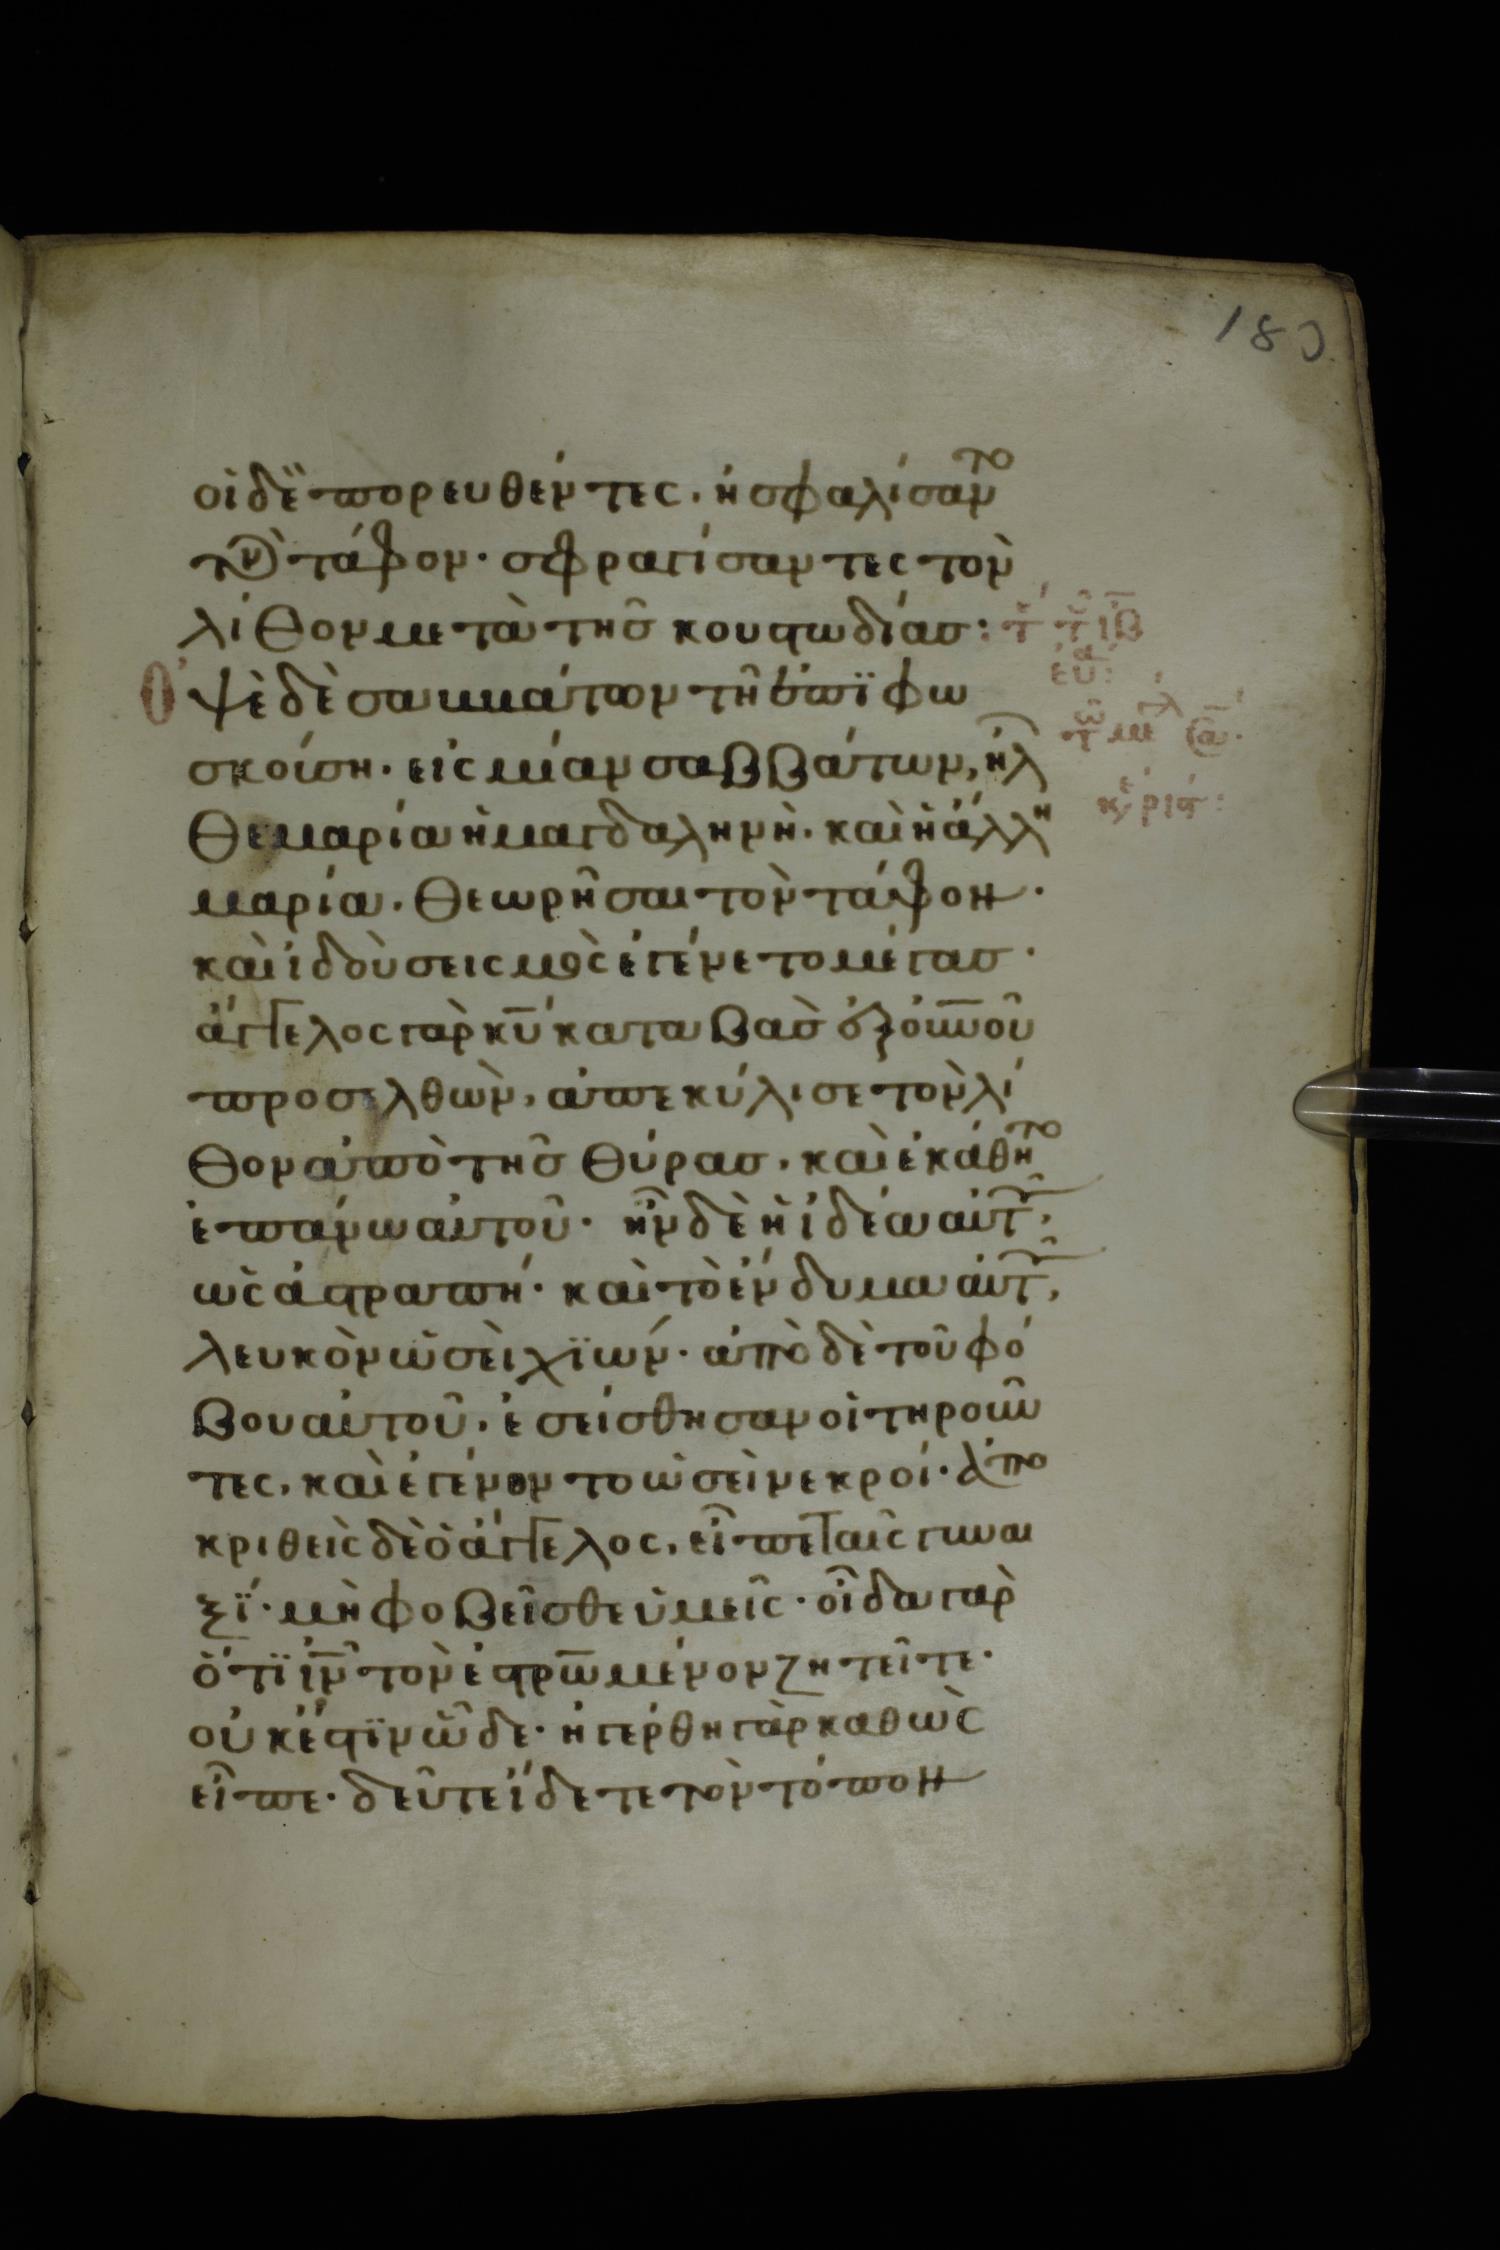 180
οἱ δὲ πορευθέντες, ἠσφαλίσαντο
τὸν τάφον· σφραγίσαντες τὸν
λίθον μετὰ τῆς κουστωδίας:
Ὀψὲ δὲ σαββάτων τῆ ἐπϊφω
σκούση· εἰς μίαν σαββάτων, ἦλ
θε μαρία ἡ μαγδαληνὴ· καὶ ἡ ἄλλη
μαρία. θεωρῆσαι τὸν τάφον·
καὶ ἰδοὺ σεισμὸς ἐγένετο μέγας·
ἄγγελος γὰρ κ̅υ̅ καταβὰς ἐξ ο̅υ̅ν̅οῦ
προσελθὼν, ἀπεκύλισε τὸν λί
θον ἀπὸ τῆς θύρας, καὶ ἐκάθητο
ἐπάνω αὐτοῦ· ἦν δὲ ἡ ἰδέα αὐτ
ὡς ἀστραπή· καὶ τὸ ἔνδυμα αὐτ,
λευκὸν ὡσεὶ χϊών· ἀπὸ δὲ τοῦ φό
βου αὐτοῦ, ἐσείσθησαν οἱ τηροῦν
τες, καὶ ἐγένοντο ὡσεὶ νεκροί· ἀπο
κριθεὶς δὲ ὁ ἄγγελος, εἶπε ταῖς γυναι
ξΐ· μὴ φοβεῖσθε ὑμεῖς· οἶδα γὰρ
ὅτϊ ι̅ν̅ τὸν ἐστρω̅μένον ζητεῖτε·
οὐκ ἔστϊν ὧδε· ἠγέρθη γὰρ καθὼς
εἶπε· δεῦτε ἴδετε τὸν τόπον